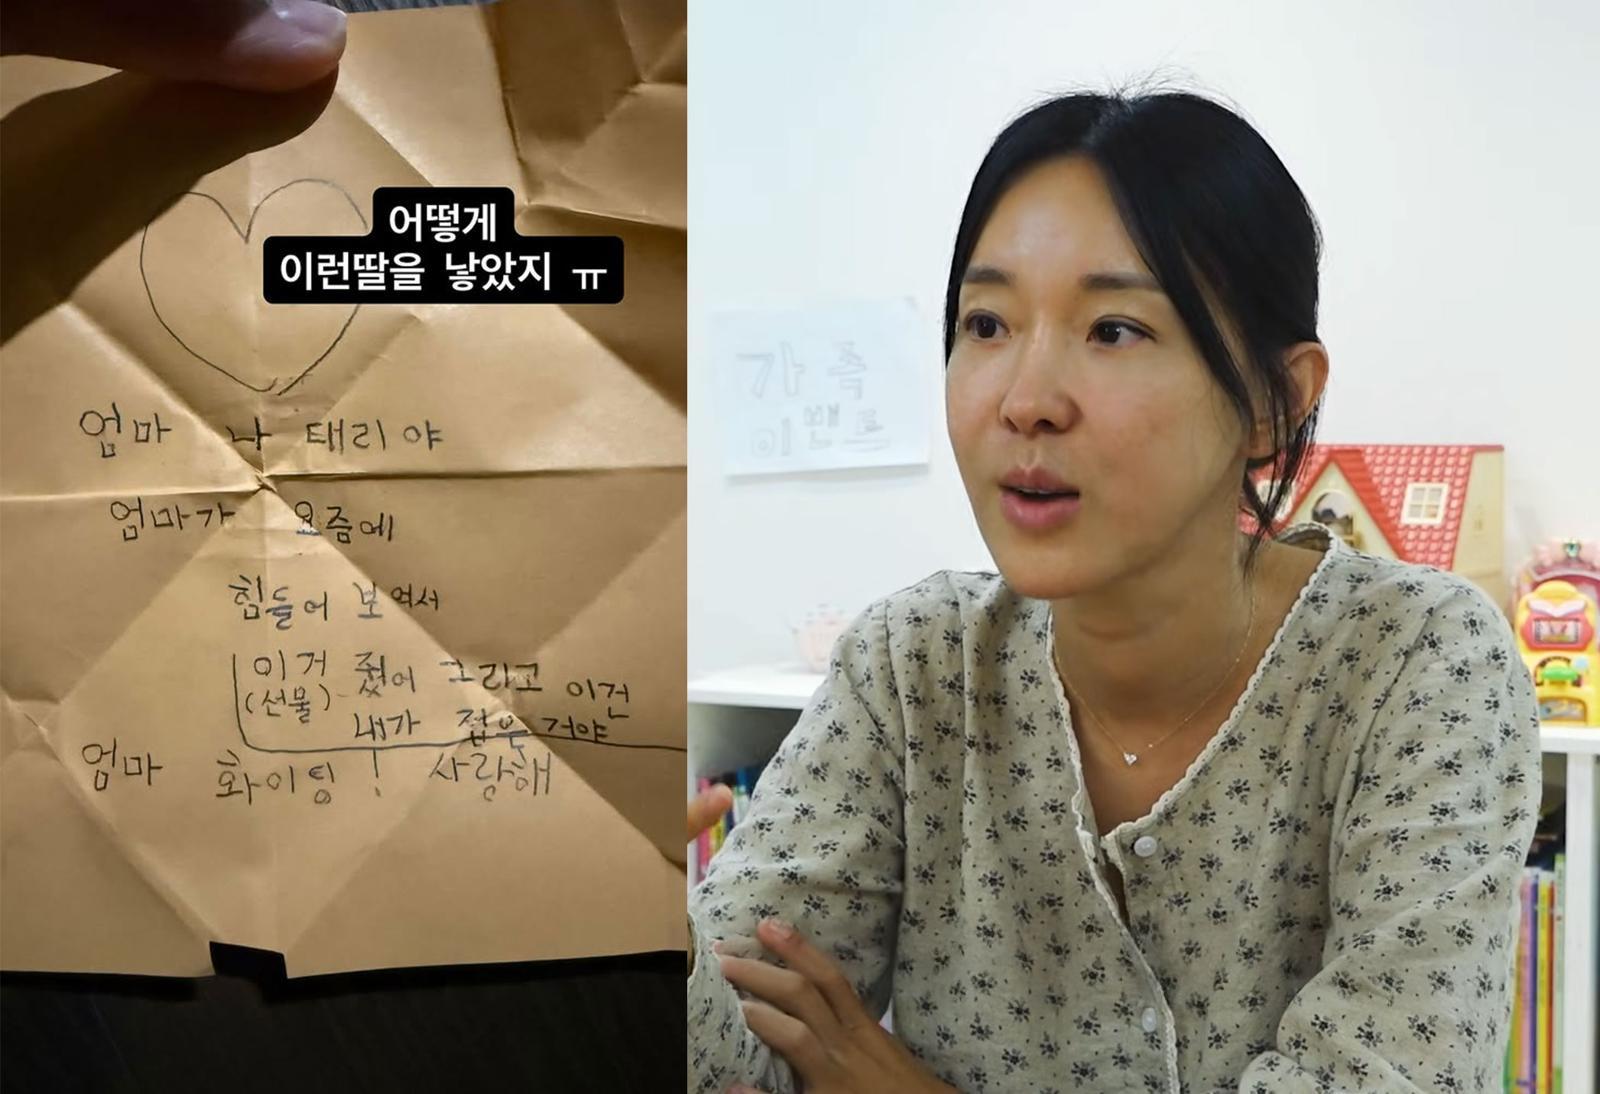 어떻게
이런딸을 낳았지 ㅠ
엄마 나 태리야
엄마가 요즘에
힘들어 보여서
이거 줬어 그리고 이건
(선물) 내가 접은 거야
엄마 화이팅! 사랑해
가족
이벤트